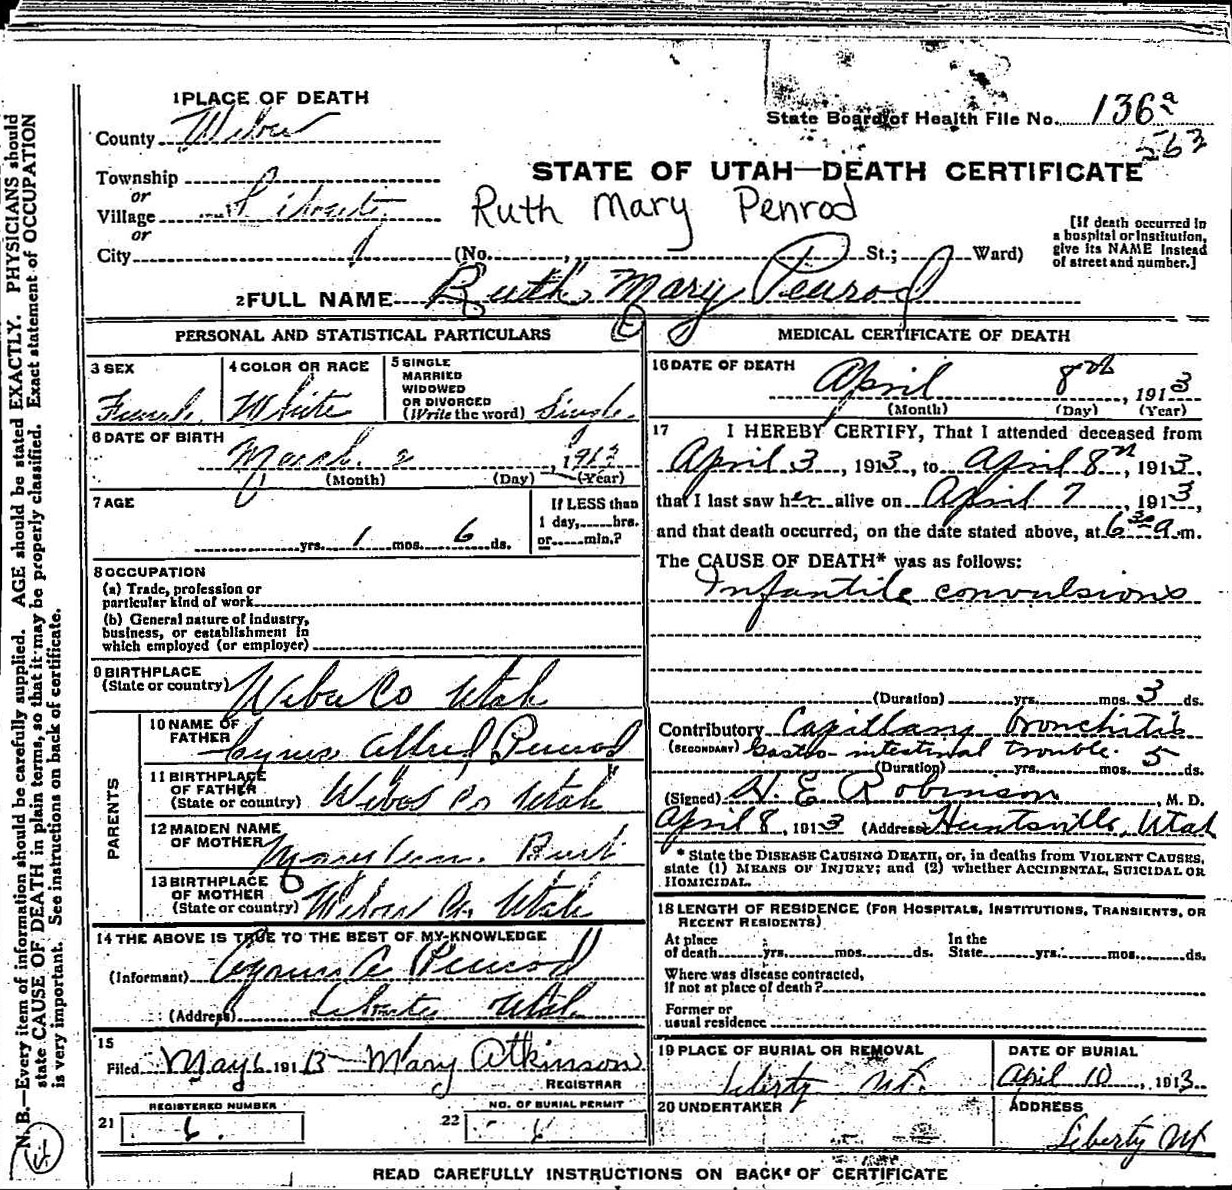 1 PLACE OF DEATH
County Weber
State Board of Health File No. 136a
563
Township
or
Village Liberty
or
City
STATE OF UTAH—DEATH CERTIFICATE
Ruth Mary Penrod
[If death occurred in a hospital or institution, give its NAME instead of street and number.]
(No. , St.; Ward)
2 FULL NAME Ruth Mary Penrod
PERSONAL AND STATISTICAL PARTICULARS
3 SEX
Female
4 COLOR OR RACE
White
5 SINGLE
MARRIED
WIDOWED
OR DIVORCED
(Write the word) Single
6 DATE OF BIRTH
March 2, 1913
(Month) (Day) (Year)
7 AGE
yrs. 1 mos. 6 ds.
If LESS than
1 day, hrs.
or min.?
8 OCCUPATION
(a) Trade, profession or
particular kind of work
(b) General nature of industry,
business, or establishment in
which employed (or employer)
9 BIRTHPLACE
(State or country) Weber Co Utah
PARENTS
10 NAME OF
FATHER Cyrus Alfred Penrod
11 BIRTHPLACE
OF FATHER
(State or country) Weber Co Utah
12 MAIDEN NAME
OF MOTHER Mary Burt
13 BIRTHPLACE
OF MOTHER
(State or country) Weber Co. Utah
14 THE ABOVE IS TRUE TO THE BEST OF MY KNOWLEDGE
(Informant) Cyrus A Penrod
(Address) Liberty Utah
15
Filed May 6 1913 Mary Atkinson
REGISTRAR
REGISTERED NUMBER
21 6.
NO. OF BURIAL PERMIT
22 6
MEDICAL CERTIFICATE OF DEATH
16 DATE OF DEATH
April 8th, 1913
(Month) (Day) (Year)
17 I HEREBY CERTIFY, That I attended deceased from
April 3, 1913, to April 8th, 1913,
that I last saw her alive on April 7, 1913,
and that death occurred, on the date stated above, at 6 30 a.m.
The CAUSE OF DEATH* was as follows:
Infantile convulsions
(Duration) yrs. mos. 3 ds.
Contributory Capillary bronchitis
(SECONDARY) Gastro-intestinal trouble.
(Duration) yrs. mos. 5 ds.
(Signed) H. E Robinson, M. D.
April 8, 1913 (Address) Huntsville, Utah
* State the DISEASE CAUSING DEATH, or, in deaths from VIOLENT CAUSES,
state (1) MEANS OF INJURY; and (2) whether ACCIDENTAL, SUICIDAL OR
HOMICIDAL.
18 LENGTH OF RESIDENCE (FOR HOSPITALS, INSTITUTIONS, TRANSIENTS, OR
RECENT RESIDENTS)
At place
of death yrs. mos. ds.
In the
State yrs. mos. ds.
Where was disease contracted,
if not at place of death?
Former or
usual residence
19 PLACE OF BURIAL OR REMOVAL
Liberty Ut.
DATE OF BURIAL
April 10, 1913
20 UNDERTAKER
ADDRESS
Liberty Ut
READ CAREFULLY INSTRUCTIONS ON BACK OF CERTIFICATE
N. B.—Every item of information should be carefully supplied. AGE should be stated EXACTLY. PHYSICIANS should
state CAUSE OF DEATH in plain terms, so that it may be properly classified. Exact statement of OCCUPATION
is very important. See instructions on back of certificate.